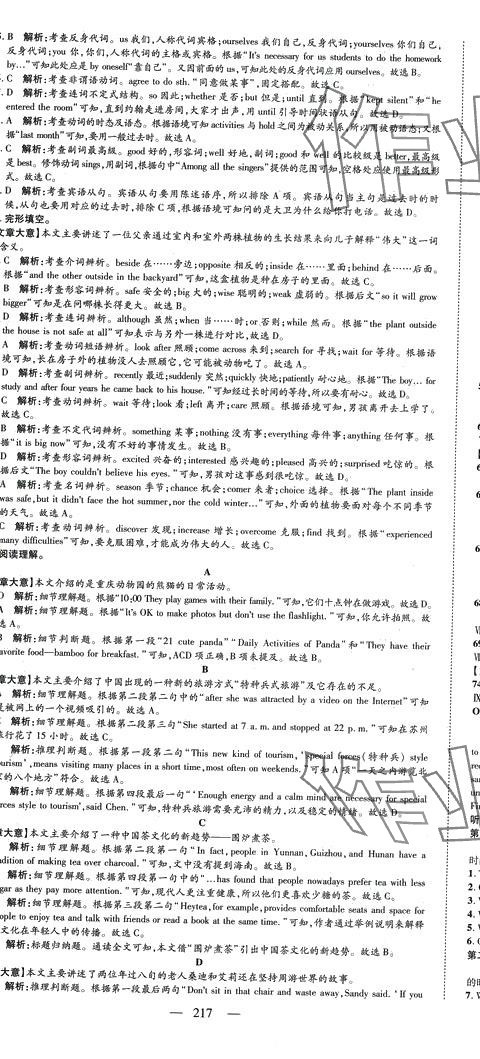 . B 解析:考查反身代词。us 我们,人称代词宾格;ourselves 我们自己,反身代词;yourselves 你们自己,
反身代词;you 你,你们,人称代词的主格或宾格。根据“It's necessary for us students to do the homework
by…”可知此处应是 by oneself“靠自己”。又因前面的 us,可知此处的反身代词应用 ourselves。故选 B。
. C 解析:考查非谓语动词。agree to do sth. “同意做某事”,固定搭配。故选 C。
. D 解析:考查连词不定式结构。so 因此;whether 是否;but 但是;until 直到。根据“kept silent”和“he
entered the room”可知,直到约翰走进房间,大家才出声,用 until 引导时间状语从句。故选 D。
. A 解析:考查动词的时态及语态。根据语境可知 activities 与 hold 之间为被动关系,所以用被动语态,又根
据“last month”可知,要用一般过去时。故选 A。
. C 解析:考查副词最高级。good 好的,形容词;well 好地,副词;good 和 well 的比较级是 better,最高级
是 best。修饰动词 sings,用副词,根据句中“Among all the singers”提供的范围可知,空格处应使用最高级形
式。故选 C。
. D 解析:考查宾语从句。宾语从句要用陈述语序,所以排除 A 项。宾语从句当主句是过去时的时
候,从句也要用对应的过去时,排除 C 项,根据语境可知问的是大卫为什么给你打电话。故选 D。
. 完形填空。
文章大意】本文主要讲述了一位父亲通过室内和室外两株植物的生长结果来向儿子解释“伟大”这一词
含义。
. C 解析:考查介词辨析。beside 在……旁边;opposite 相反的;inside 在……里面;behind 在……后面。
根据“and the other outside in the backyard”可知,这盆植物是种在房子的里面。故选 C。
B 解析:考查形容词辨析。safe 安全的;big 大的;wise 聪明的;weak 虚弱的。根据后文“so it will grow
bigger”可知是在问哪株长得更大。故选 B。
D 解析:考查连词辨析。although 虽然;when 当……时;or 否则;while 然而。根据“the plant outside
the house is not safe at all”可知表示与另外一株进行对比,故选 D。
A 解析:考查动词短语辨析。look after 照顾;come across 来到;search for 寻找;wait for 等待。根据语
境可知,长在房子外的植物没人去照顾它,它可能被动物吃了。故选 A。
D 解析:考查副词辨析。recently 最近;suddenly 突然;quickly 快地;patiently 耐心地。根据“The boy… for
study and after four years he came back to his house.”可知经过长时间的等待,所以要有耐心。故选 D。
C 解析:考查动词辨析。wait 等待;look 看;left 离开;care 照顾。根据语境可知,男孩离开去上学了。
故选 C。
B 解析:考查不定代词辨析。something 某事;nothing 没有事;everything 每件事;anything 任何事。根
据“it is big now”可知,没有不好的事情发生。故选 B。
D 解析:考查形容词辨析。excited 兴奋的;interested 感兴趣的;pleased 高兴的;surprised 吃惊的。根
据后文“The boy couldn't believe his eyes.”可知,男孩对这事感到很吃惊。故选 D。
A 解析:考查名词辨析。season 季节;chance 机会;comer 来者;choice 选择。根据“The plant inside
was safe,but it didn't face the hot summer,nor the cold winter…”可知,外面的植物要面对每个不同季节
的天气。故选 A。
C 解析:考查动词辨析。discover 发现;increase 增长;overcome 克服;find 找到。根据“experienced
many difficulties”可知,要克服困难,才能成为伟大的人。故选 C。
阅读理解。
A
章大意】本文介绍的是重庆动物园的熊猫的日常活动。
D 解析:细节理解题。根据“10:00 They play games with their family.”可知,它们十点钟在做游戏。故选 D。
A 解析:细节理解题。根据“It's OK to make photos but don't use the flashlight.”可知,你允许拍照。故
选 A。
B 解析:细节判断题。根据第一段“21 cute panda”“Daily Activities of Panda”和“They have their
favorite food—bamboo for breakfast.”可知,ACD 项正确,B 项未提及。故选 B。
B
章大意】本文主要介绍了中国出现的一种新的旅游方式“特种兵式旅游”及它存在的不足。
解析:细节理解题。根据第二段第二句中的“after she was attracted by a video on the Internet”可知
是被网上的一个视频吸引的。故选 A。
解析:细节理解题。根据第二段第三句“She started at 7 a. m. and stopped at 22 p. m.”可知在苏州
旅行花了 15 小时。故选 C。
解析:推理判断题。根据第一段第二句“This new kind of tourism,‘special forces(特种兵) style
tourism’,means visiting many places in a short time,most often on weekends.”可知 A 项“一天之内游览北
京的八个地方”符合。故选 A。
解析:细节理解题。根据第四段最后一句“‘Enough energy and a calm mind are necessary for special
forces style to tourism’,said Chen.”可知,特种兵旅游需要充沛的精力,以及稳定的情绪。故选 D。
C
章大意】本文主要介绍了一种中国茶文化的新趋势——围炉煮茶。
解析:细节理解题。根据第一段第二句“In fact,people in Yunnan, Guizhou, and Hunan have a
tradition of making tea over charcoal.”可知,文中没有提到海南。故选 B。
解析:细节理解题。根据第四段第一句中的“…has found that people nowadays prefer tea with less
sugar as they pay more attention.”可知,现代人更注重健康,所以他们更喜欢少糖的茶。故选 B。
解析:细节理解题。根据第二段第二句“Heytea,for example,provides comfortable seats and space for
people to enjoy tea and talk with friends or read a book at the same time.”可知,作者通过举例说明来解释
文化在年轻人中的传播。故选 C。
解析:标题归纳题。通读全文可知,本文借“围炉煮茶”引出中国茶文化的新趋势。故选 B。
D
大意】本文主要讲述了两位年过八旬的老人桑迪和艾莉还在坚持周游世界的故事。
解析:推理判断题。根据第一段最后两句“Don't sit in that chair and waste away,Sandy said. ‘If you
— 217 —